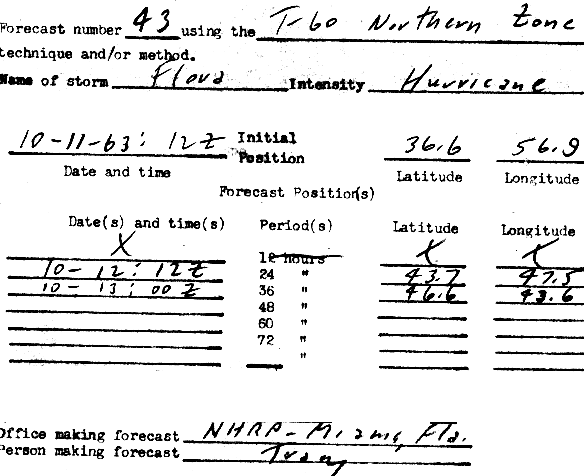 Forecast number 43 using the T-60 Northern Zone
technique and/or method.
Name of storm Flora Intensity Hurricane
10-11-63: 12Z Initial Position 36.6 56.9
Date and time Latitude Longitude
Forecast Position(s)
Date(s) and time(s) Period(s) Latitude Longitude
X 12 hours X X
10-12: 12Z 24 " 43.7 47.5
10-13: 00Z 36 " 46.6 43.6
48 "
60 "
72 "
"
Office making forecast NHRP-Miami, Fla.
Person making forecast